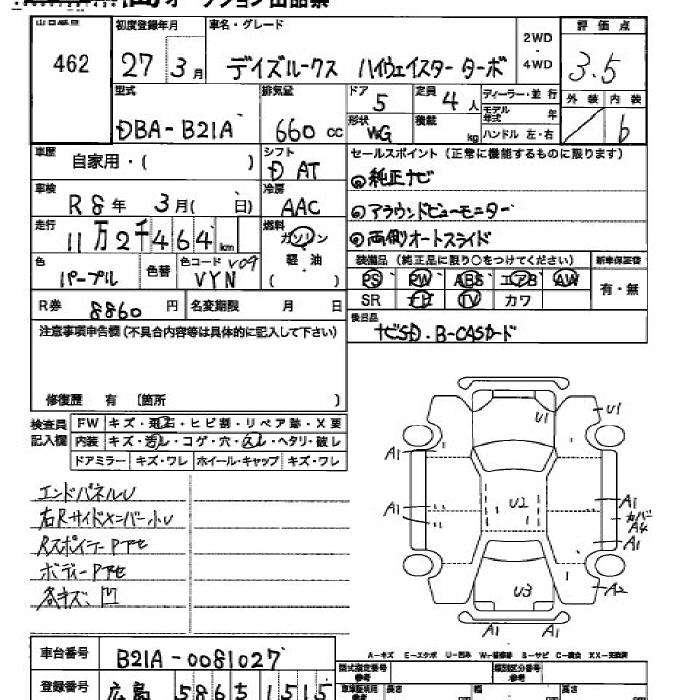 オークション出品票
出品番号 初度登録年月 車名・グレード 2WD・4WD 評価点
462 27年 3月 デイズルークス ハイウェイスター ターボ 3.5
型式 排気量 ドア 5 定員 4人 ディーラー・並行 外装 内装
DBA-B21A 660cc 形状 WG 積載 kg モデル年式 年 ハンドル 左・右 b
車歴 自家用・( ) シフト セールスポイント(正常に機能するものに限ります)
D AT ◎純正ナビ
車検 R8年 3月( 日) 冷房 AAC ◎アラウンドビューモニター
走行 11万2千464km 燃料 ガソリン 軽油 ( ) ◎両側オートスライド
色 パープル 色替 色コード V09 VYN 装備品(純正品に限り○をつけてください) 新車保証書
PS PW ABS エアB AW 有・無
SR ナビ TV カワ
R券 8860円 名変期限 月 日 後日品
ナビSD・B-CASカード
注意事項申告欄(不具合内容等は具体的に記入して下さい)
修復歴 有 〔箇所 〕
検査員記入欄 FW キズ・飛石・ヒビ割・リペア跡・X要
内装 キズ・汚レ・コゲ・穴・スレ・ヘタリ・破レ
ドアミラー キズ・ワレ ホイール・キャップ キズ・ワレ
エンドパネルU
右Rサイドメンバー小U
RスポイラーP下セ
ボディーP下セ
各キズ、凹
U1 U1
A1
U2
A1 A1
カバーA4
A1
U3 A2
A1 A1
A-キズ E-エクボ U-凹み W-補修跡 S-サビ C-腐食 XX-交換済
車台番号 B21A-0081027
型式指定番号 参考 類別区分番号 参考
登録番号 広島 586 う 1515
車車証明用 参考 長さ 幅 高さ